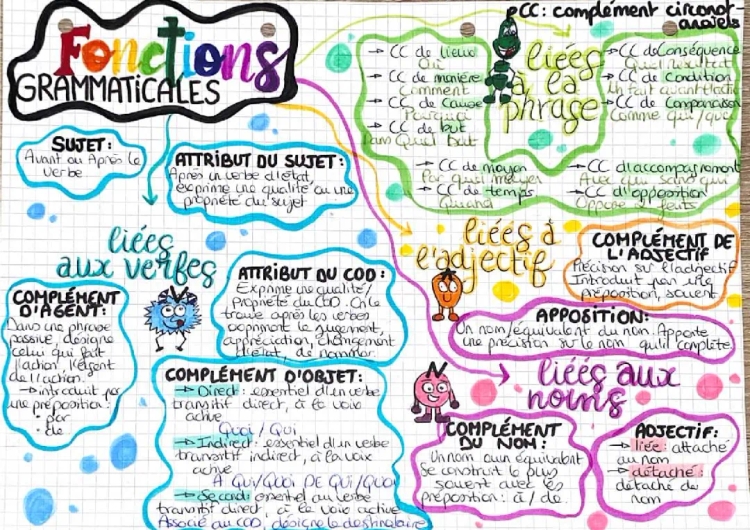 Fonctions
GRAMMATICALES
CC: complément circonst-
anciels
liées
à la
phrase
→ CC de lieu
Où
→ CC de manière
Comment
→ CC de cause
Pourquoi
→ CC de but
Dans Quel But
→ CC de moyen
Par quel moyen
→ CC de temps
Quand
→ CC de Conséquence
Quel résultat
→ CC de condition
Un fait avant l'autre
→ CC de comparaison
Comme qui/quoi
→ CC d'accompagnement
Avec qui / sans qui
→ CC d'opposition
Oppose 2 faits
SUJET:
Avant ou Après le
verbe
ATTRIBUT DU SUJET:
Après un verbe d'état,
exprime une qualité ou une
propriété du sujet
liées
aux verbes
ATTRIBUT DU COD:
Exprime une qualité/
propriété du COD. On le
trouve après les verbes
exprimant le jugement,
appréciation, changement
d'état, de nommer.
COMPLÉMENT
D'AGENT:
Dans une phrase
passive, désigne
celui qui fait
l'action, l'agent
de l'action.
→ introduit par
une préposition:
• par
• de
COMPLÉMENT D'OBJET:
→ Direct: essentiel d'un verbe
transitif direct, à la voix
active
Quoi / Qui
→ Indirect: essentiel d'un verbe
transitif indirect, à la voix
active
A QUI/QUOI DE QUI/QUOI
→ Second: essentiel au verbe
transitif direct, à la voix active
Associé au COD, désigne le destinataire
liées à
l'adjectif
COMPLÉMENT DE
L'ADJECTIF
Précision sur l'adjectif
Introduit par une
préposition, souvent
APPOSITION:
Un nom/équivalent du nom. Apporte
une précision sur le nom qu'il complète
liées aux
noms
COMPLÉMENT
DU NOM:
Un nom ou un équivalent
Se construit le plus
souvent avec les
préposition: à / de.
ADJECTIF:
→ liée: attaché
au nom
→ détaché:
détaché du
nom